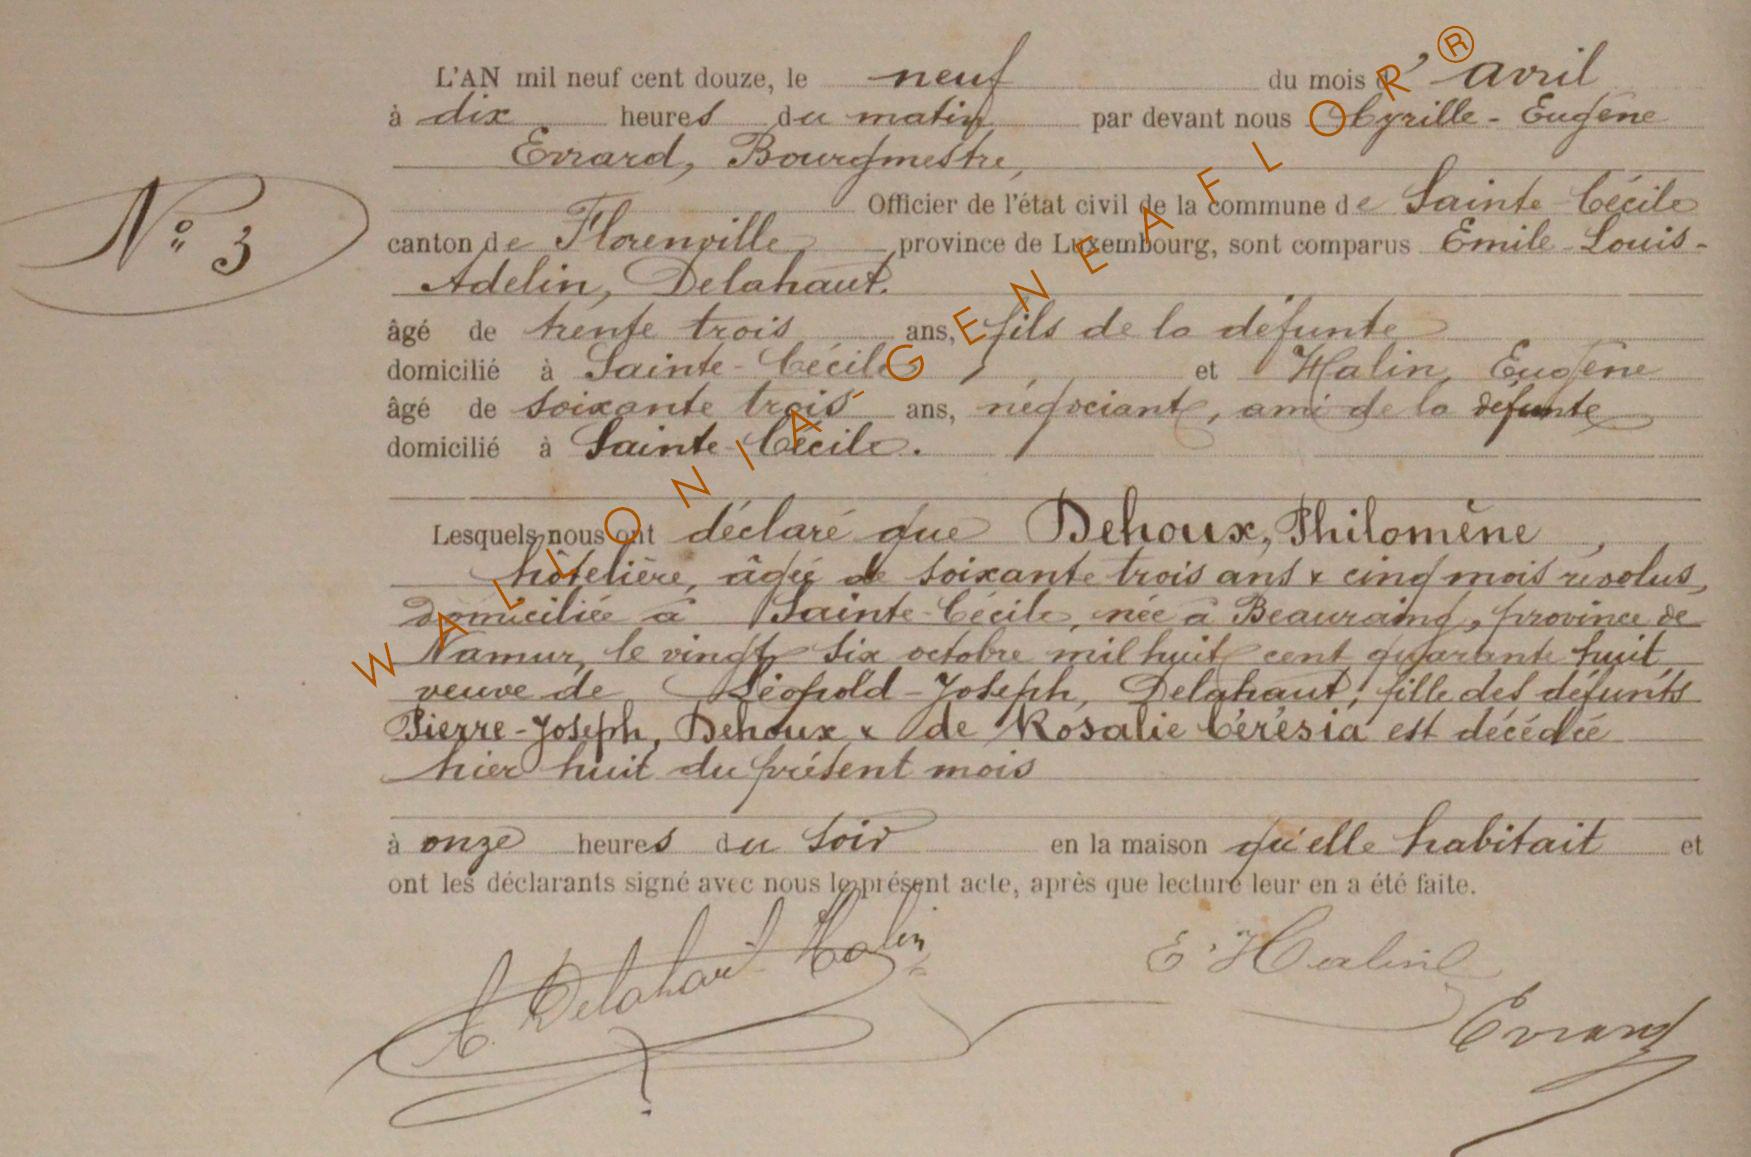 L'AN mil neuf cent douze, le neuf du mois d'avril
à dix heures du matin par devant nous Cyrille-Eugène
Evrard, Bourgmestre,
N° 3
Officier de l'état civil de la commune de Sainte-Cécile
canton de Florenville, province de Luxembourg, sont comparus Emile-Louis-
Adelin, Delahaut.
âgé de trente trois ans, fils de la défunte
domicilié à Sainte-Cécile, et Halin, Eugène
âgé de soixante trois ans, négociant, ami de la défunte
domicilié à Sainte-Cécile.
Lesquels nous ont déclaré que Dehoux, Philomène,
hôtelière, âgée de soixante trois ans & cinq mois révolus,
domiciliée à Sainte-Cécile, née à Beauraing, province de
Namur, le vingt six octobre mil huit cent quarante huit,
veuve de Léopold-Joseph, Delahaut, fille des défunts
Pierre-Joseph, Dehoux & de Rosalie Cérésia est décédée
hier huit du présent mois
à onze heures du soir en la maison qu'elle habitait et
ont les déclarants signé avec nous le présent acte, après que lecture leur en a été faite.
E. Delahaut Halin
E. Halin
Evrard
WALLONIA-GENEAFLOR®